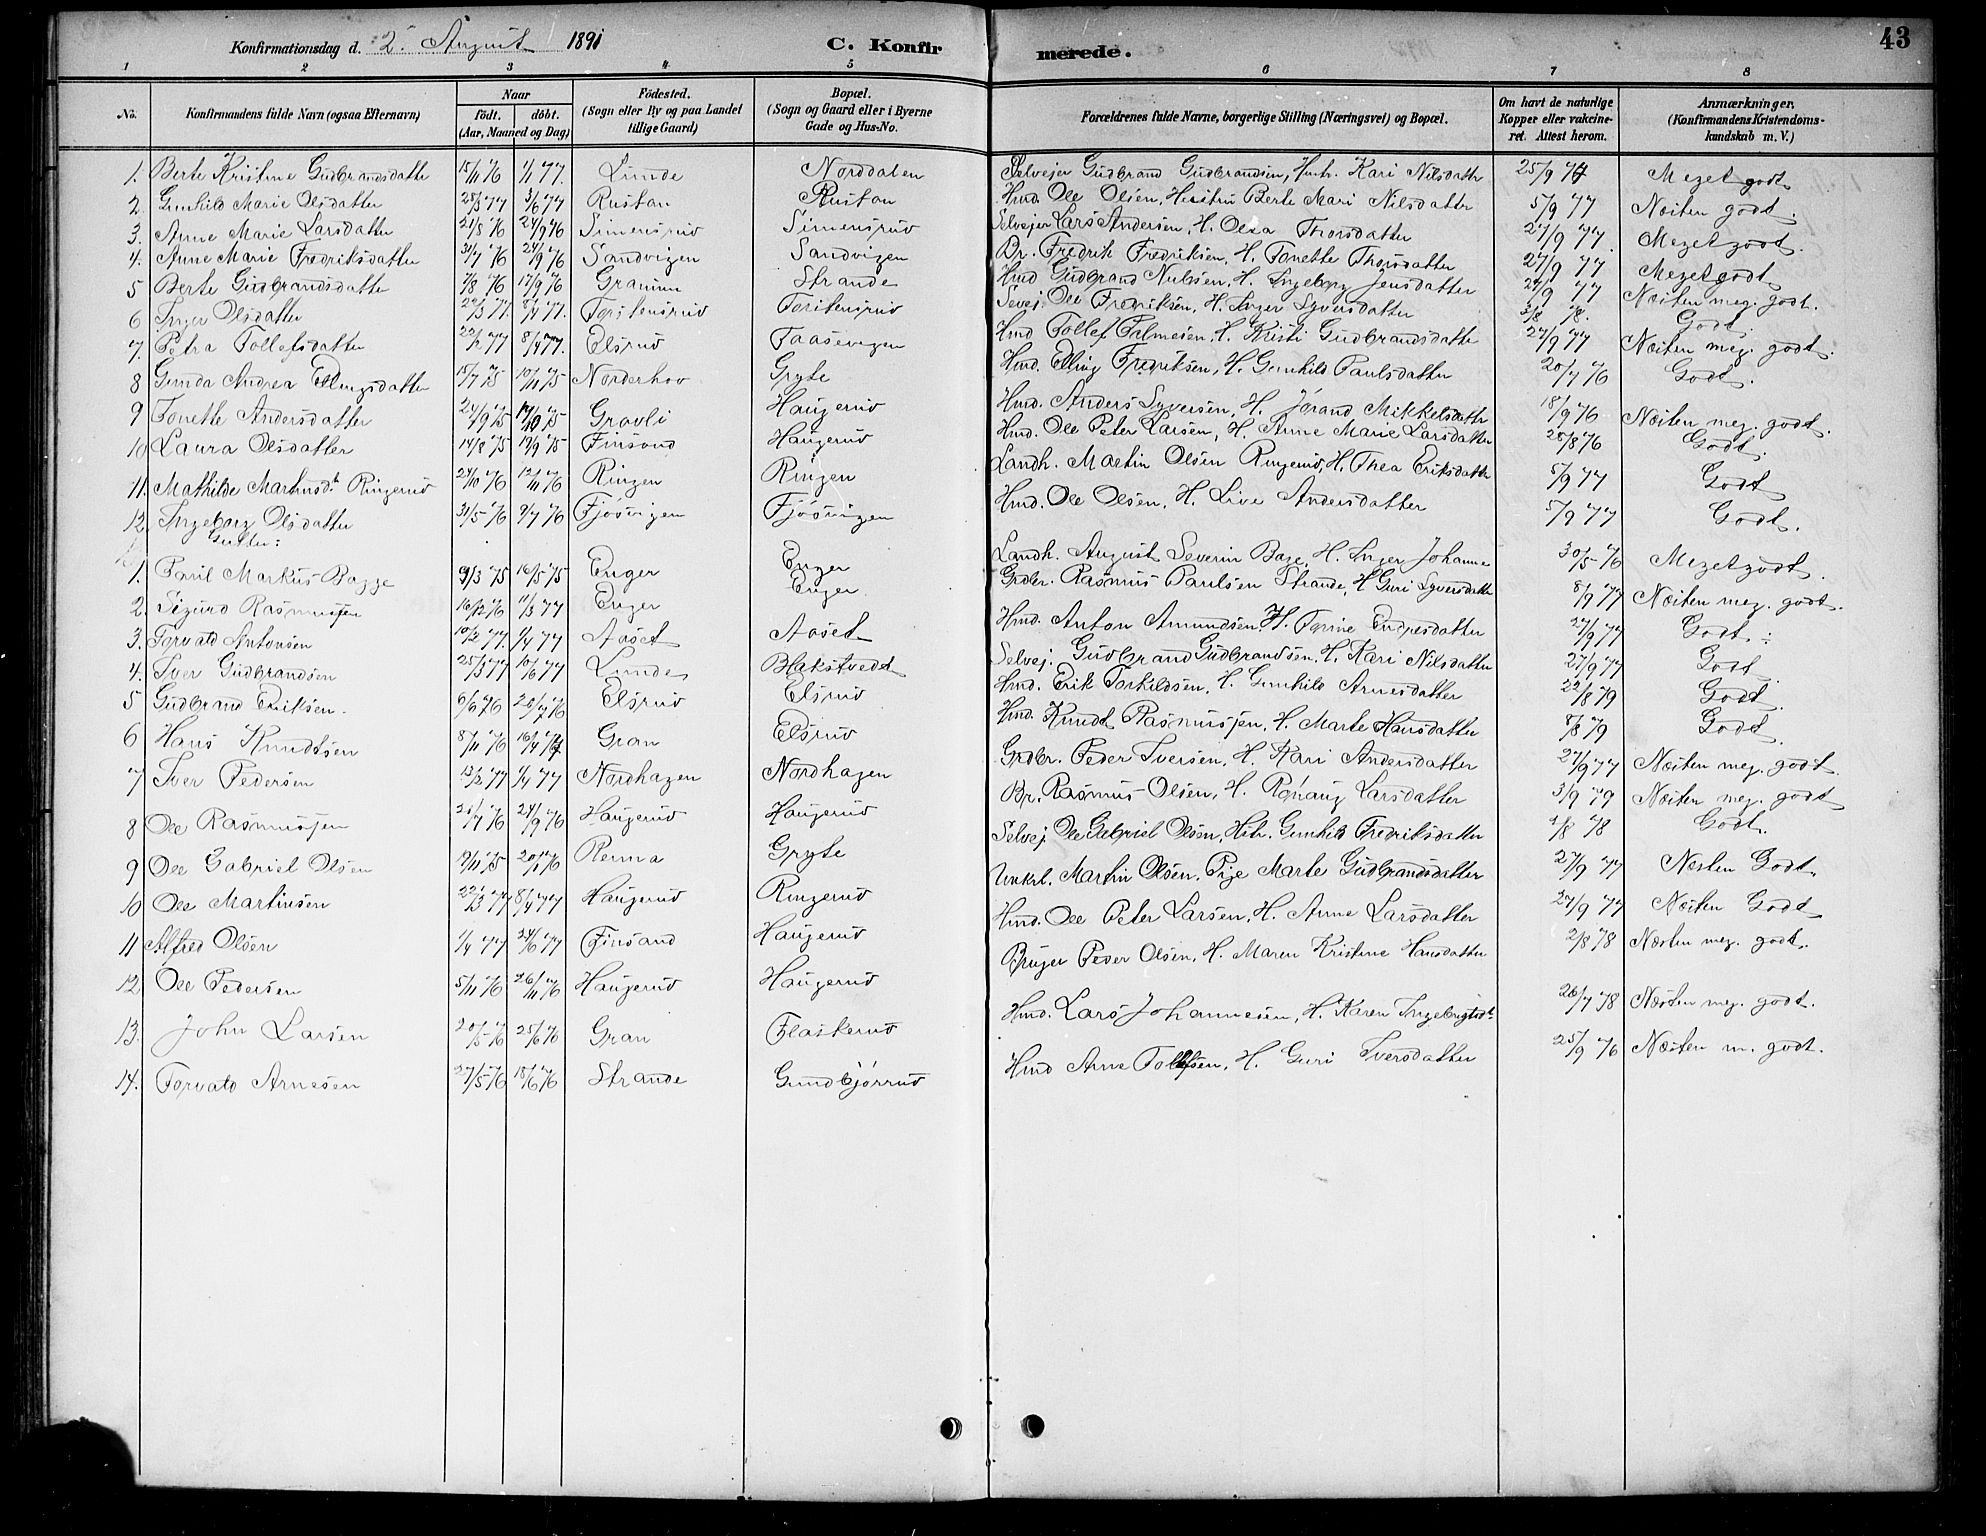 Konfirmationsdag d. 2. August 1891 C. Konfirmerede. 43
1 2 3 4 5 6 7 8
No. Konfirmandens fulde Navn (ogsaa Efternavn) Naar födt. döbt. (Aar, Maaned og Dag) Födested. (Sogn eller By og paa Landet tillige Gaard) Bopæl. (Sogn og Gaard eller i Byerne Gade og Hus-No. Forældrenes fulde Navne, borgerlige Stilling (Næringsvei) og Bopæl. Om havt de naturlige Kopper eller vakcineret. Attest herom. Anmærkninger. (Konfirmandens Kristendomskundskab m. V.)
1. Berte Kristine Gudbrandsdatter 15/11 76 1/1 77. Linde Norddalen Selvejer Gudbrand Gudbrandsen, Hustr. Kari Nilsdatter 25/9 77 Meget godt
2 Gunhild Marie Olsdatter 25/3 77 3/6 77 Rustan Rustan Hmd. Ole Olsen, Hustru Berte Mari Nilsdatter 5/9 77 Næsten godt.
3. Anne Marie Larsdatter 21/8 76 24/9 76 Simensrud Simensrud Selvejer Lars Andersen, H. Olea Thorsdatter 27/9 77. Meget godt.
4. Anne Marie Fredriksdatter 31/7 76 24/9 76 Sandvigen Sandvigen Br. Fredrik Fredriksen, H. Tonette Thorsdatter 27/9 77 Meget godt
5 Berte Gudbrandsdatter 7/8 76 17/9 76 Granum Strande Hmd Gudbrand Nilsen, H. Ingeborg Jensdatter 27/9 77 Næsten meg. godt.
6 Inger Olsdatter 22/3 77. 8/4 77. Torstensrud Torstensrud Selvej. Ole Fredriksen, H. Inger Syversdatter 3/8 78. Godt.
7. Petra Tollefsdatter 22/2 77 8/4 77. Elsrud Faasevigen Hmd Tollef Palmesen, H. Kristi Gudbrandsdatter 27/9 77 Næsten meg. godt.
8 Gunda Andrea Ellingsdatter 15/7 75 10/11 75 Norderhov Gryte Hmd. Elling Fredriksen, H. Gunhild Paulsdatter 20/7 76 Godt.
9 Tonette Andersdatter 24/9 75 17/10 75 Gravli Haugerud Hmd. Anders Syversen, H. Jørand Mikkelsdatter 18/9 76 Næsten meg. godt.
10 Laura Olsdatter 14/8 75 19/9 75 Finsand Haugerud Hmd. Ole Peter Larsen, H. Anne Marie Larsdatter 25/8 76 Godt.
11. Mathilde Martinsdt. Ringerud 24/10 76 12/11 76 Ringen Ringen Landh. Martin Olsen Ringerud, H. Thea Eriksdatter 5/9 77 Godt
12. Ingeborg Olsdatter 31/5 76 9/7 76 Fjøsvigen Fjøsvigen Hmd. Ole Olsen, H. Live Andersdatter 5/9 77 Godt.
Gutter:
1. Paul Markus Bagge 9/3 75 16/5 75 Enger Enger Landh. August Severin Bage, H. Inger Johanne 30/5 76 Meget godt.
2. Sigurd Rasmussen 16/12 76 11/3 77 Enger Enger Grdbr. Rasmus Paulsen Strande, H Guri Syversdatter 8/9 77 Næsten meg. godt.
3. Torvald Antonsen 10/2 77. 1/4 77 Aaset Aaset Hmd. Anton Amundsen H. Torine Endresdatter 27/9 77 Godt.
4. Iver Gudbrandsen 25/3 77 10/6 77 Linde Blakstvedt Selvej. Gudbrand Gudbrandsen, H. Kari Nilsdatter 27/9 77 Godt.
5 Gudbrand Eriksen. 6/6 76 26/7 76 Elsrud Elsrud Hmd. Erik Torkildsen, H. Gunhild Arnesdatter 22/8 79 Godt.
6 Hans Knudtsen 8/11 76 16/4 77 Gran Elsrud Hmd. Knudt Rasmussen, H. Marte Hansdatter 8/8 79 Godt.
7 Iver Pedersen 13/2 77 1/4 77 Nordhagen Nordhagen Grdbr. Peder Iversen, H. Kari Andersdatter 27/9 77 Næsten meg. godt.
8 Ole Rasmussen 25/7 76 24/9 76 Haugerud Haugerud Br. Rasmus Olsen, H. Rønaug Larsdatter 3/9 79 Næsten meg. godt
9 Ole Gabriel Olsen 19/11 75 20/1 76 Renna Gryte Selvej. Ole Gabriel Olsen, Hstr. Gunhild Fredriksdatter 1/8 78 Godt.
10 Ole Martinsen 22/3 77 8/4 77 Haugerud Ringerud Unkrl. Martin Olsen, Pige Marte Gudbrandsdatter 27/9 77 Næsten Godt.
11 Alfred Olsen 1/4 77 24/6 77 Finsand Haugerud Hmd. Ole Peter Larsen, H. Anne Larsdatter 27/9 77 Næsten Godt
12 Ole Pedersen 5/11 76 26/11 76 Haugerud Haugerud Bruger Peder Olsen, H. Maren Kristine Hansdatter 2/8 78 Næsten meg. godt.
13. John Larsen 20/5 76 25/6 76 Gran Flaskerud Hmd. Lars Johannesen, H. Karen Ingebrigtsdt. 26/7 78 Næsten meg. godt.
14. Torvald Arnesen 27/5 76 18/6 76 Strande Gundbjørrud Hmd Arne Tollefsen, H. Guri Iversdatter 25/9 76 Næsten m. godt.